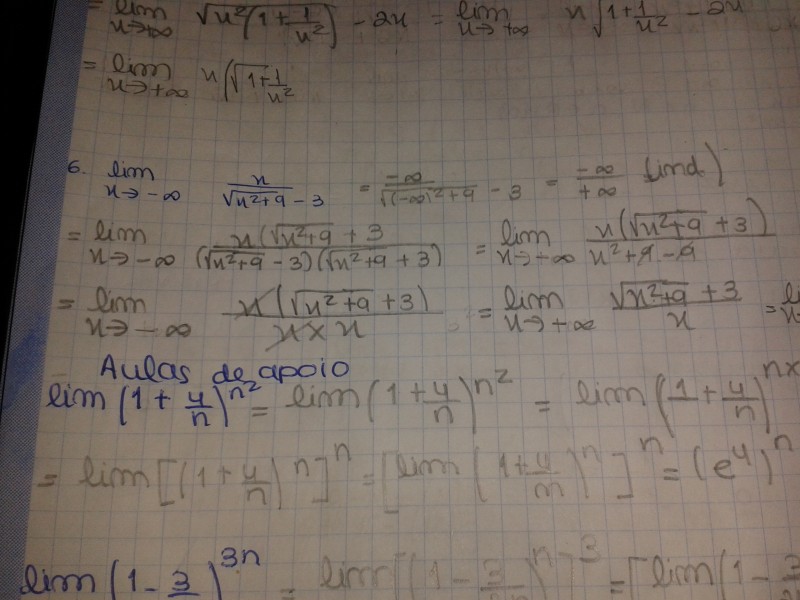 = lim x→+∞ √(x²(1+1/x²)) - 2x = lim x→+∞ x√(1+1/x²) - 2x
= lim x→+∞ x(√(1+1/x²)
6. lim x→-∞ x/(√(x²+9) - 3) = -∞/(√((-∞)²+9) - 3) = -∞/+∞ (ind.)
= lim x→-∞ x(√(x²+9) + 3/((√(x²+9) - 3)(√(x²+9) + 3)) = lim x→-∞ x(√(x²+9) + 3)/(x²+9-9)
= lim x→-∞ x(√(x²+9) + 3)/(x×x) = lim x→+∞ (√(x²+9) + 3)/x =
Aulas de apoio
lim (1 + 4/n)^n² = lim (1 + 4/n)^n² = lim (1 + 4/n)^nx
= lim [(1 + 4/n)^n]^n = [lim (1 + 4/m)^n]^n = (e^4)^n
lim (1 - 3/ )^3n = lim [(1 - 3/ )^n]^3 = [lim (1 - 3/